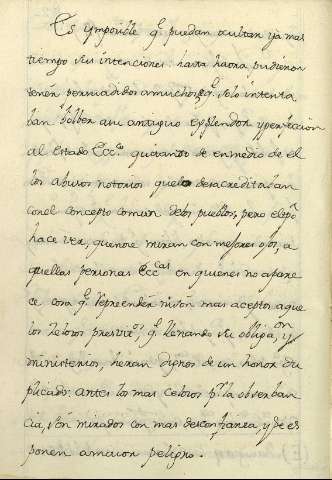 Es ymposible q.e puedan ocultar ya mas
tiempo sus intenciones: hasta haora pudieron
tener persuadidos a muchos, q.e solo intenta
ban bolber a su antiguo Esplendor y perfeccion
al Estado Ecc.co quitando de en medio de el
los abusos notorios que lo desacreditaban
con el concepto comun de los pueblos, pero el tpo
hace ver, que no se miran con mejores ojos, a
quellas personas Ecc.cas en quienes no apare
ce cosa q.e reprender ni son mas aceptos aque
llos zelosos presviros, q.e llenando su obliga.on y
ministerio, heran dignos de un honor du
plicado: antes los mas celosos pr. la observan
cia, son mirados con mas desconfianza y se es
ponen a maior peligro.